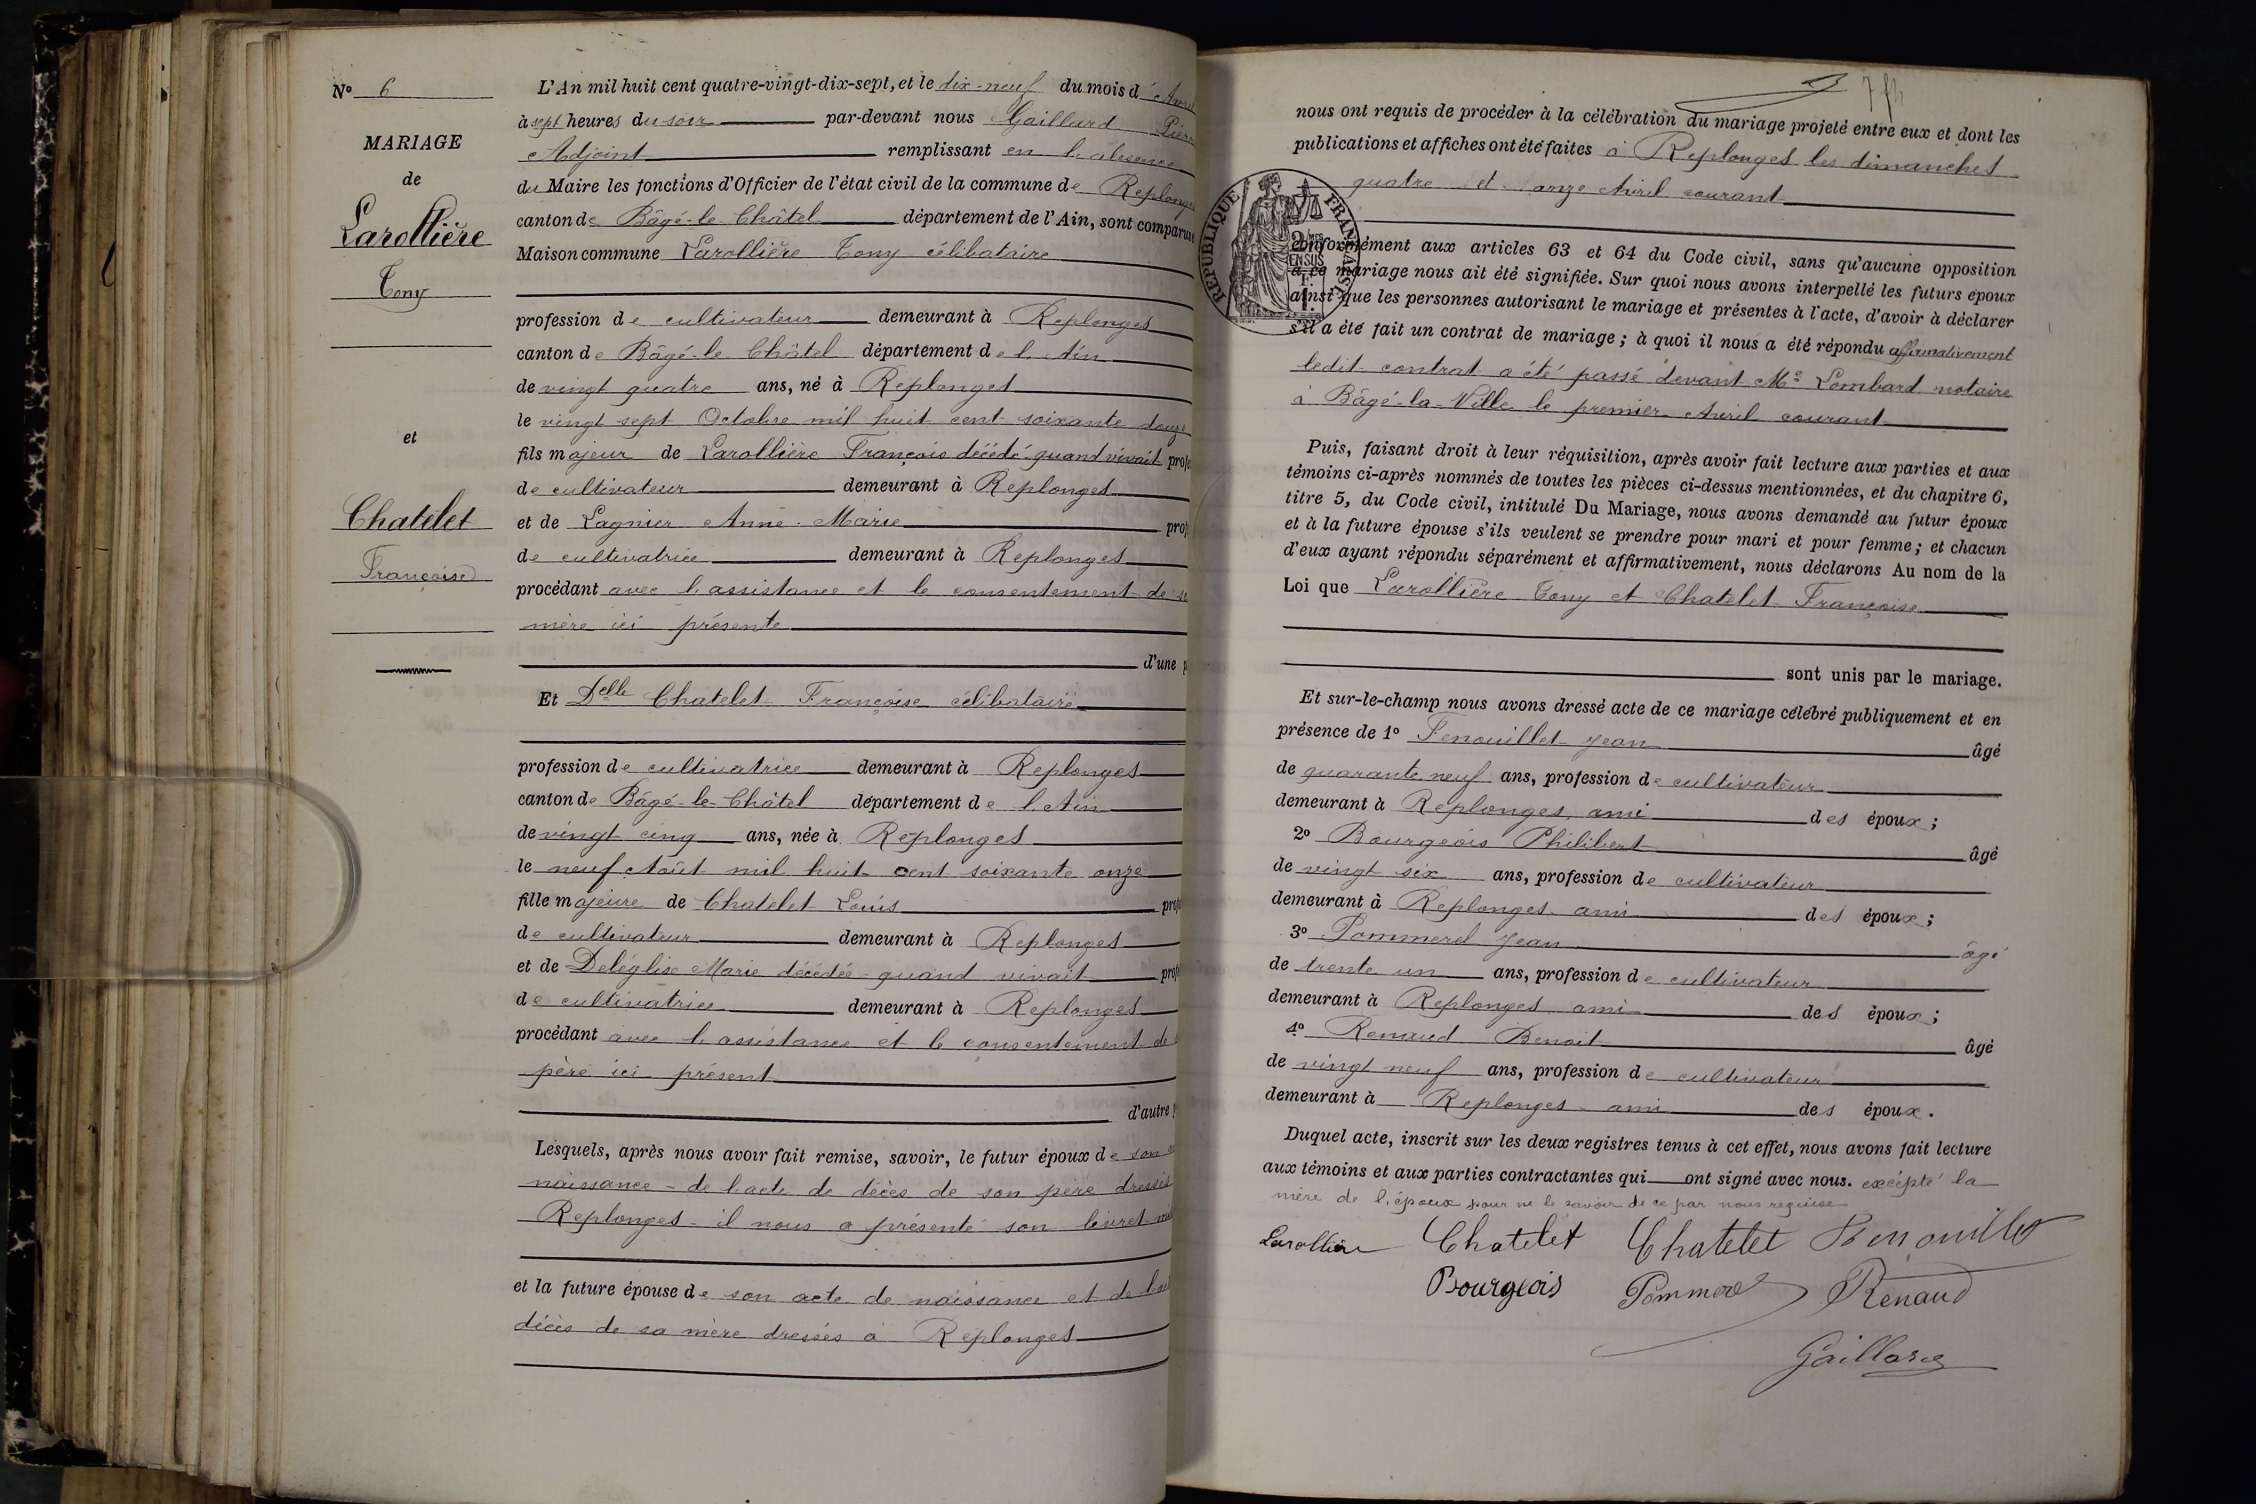 Nº 6
MARIAGE
de
Larollière
Tony
et
Chatelet
Françoise
L'An mil huit cent quatre-vingt-dix-sept, et le dix-neuf du mois d'Avril
à sept heures du soir par-devant nous Gaillard Pierre
Adjoint remplissant en l'absence
du Maire les fonctions d'Officier de l'état civil de la commune de Replonges
canton de Bâgé-le-Châtel département de l'Ain, sont comparus
Maison commune Larollière Tony célibataire
profession de cultivateur demeurant à Replonges
canton de Bâgé-le-Châtel département de l'Ain
de vingt quatre ans, né à Replonges
le vingt sept Octobre mil huit cent soixante douze
fils majeur de Larollière François décédé quand vivait prof
de cultivateur demeurant à Replonges
et de Lagnier Anne-Marie prof
de cultivatrice demeurant à Replonges
procédant avec l'assistance et le consentement de sa
mère ici présente
d'une p
Et Delle Chatelet Françoise célibataire
profession de cultivatrice demeurant à Replonges
canton de Bâgé-le-Châtel département de l'Ain
de vingt cinq ans, née à Replonges
le neuf Août mil huit cent soixante onze
fille majeure de Chatelet Louis prof
de cultivateur demeurant à Replonges
et de Deléglise Marie décédée quand vivait prof
de cultivatrice demeurant à Replonges
procédant avec l'assistance et le consentement de
père ici présent
d'autre p
Lesquels, après nous avoir fait remise, savoir, le futur époux de son
naissance - de l'acte de décès de son père dressés
Replonges - il nous a présenté son livret
et la future épouse de son acte de naissance et de l'
décès de sa mère dressés à Replonges
nous ont requis de procéder à la célébration du mariage projeté entre eux et dont les
publications et affiches ont été faites à Replonges les dimanches
quatre et onze Avril courant
RÉPUBLIQUE FRANÇAISE
conformément aux articles 63 et 64 du Code civil, sans qu'aucune opposition
à ce mariage nous ait été signifiée. Sur quoi nous avons interpellé les futurs époux
ainsi que les personnes autorisant le mariage et présentes à l'acte, d'avoir à déclarer
s'il a été fait un contrat de mariage; à quoi il nous a été répondu affirmativement
ledit contrat a été passé devant Me Lombard notaire
à Bâgé-la-Ville le premier Avril courant
Puis, faisant droit à leur réquisition, après avoir fait lecture aux parties et aux
témoins ci-après nommés de toutes les pièces ci-dessus mentionnées, et du chapitre 6,
titre 5, du Code civil, intitulé Du Mariage, nous avons demandé au futur époux
et à la future épouse s'ils veulent se prendre pour mari et pour femme; et chacun
d'eux ayant répondu séparément et affirmativement, nous déclarons Au nom de la
Loi que Larollière Tony et Chatelet Françoise
sont unis par le mariage.
Et sur-le-champ nous avons dressé acte de ce mariage célébré publiquement et en
présence de 1º Fenouillet Jean âgé
de quarante neuf ans, profession de cultivateur
demeurant à Replonges, ami des époux;
2º Bourgeois Philibert âgé
de vingt six ans, profession de cultivateur
demeurant à Replonges ami des époux;
3º Pommerel Jean âgé
de trente un ans, profession de cultivateur
demeurant à Replonges ami des époux;
4º Renaud Benoit âgé
de vingt neuf ans, profession de cultivateur
demeurant à Replonges - ami des époux.
Duquel acte, inscrit sur les deux registres tenus à cet effet, nous avons fait lecture
aux témoins et aux parties contractantes qui ont signé avec nous. excépté la
mère de l'époux pour ne le savoir de ce par nous requise
Larollière Chatelet Chatelet Fenouillet
Bourgeois Pommerel Renaud
Gaillard